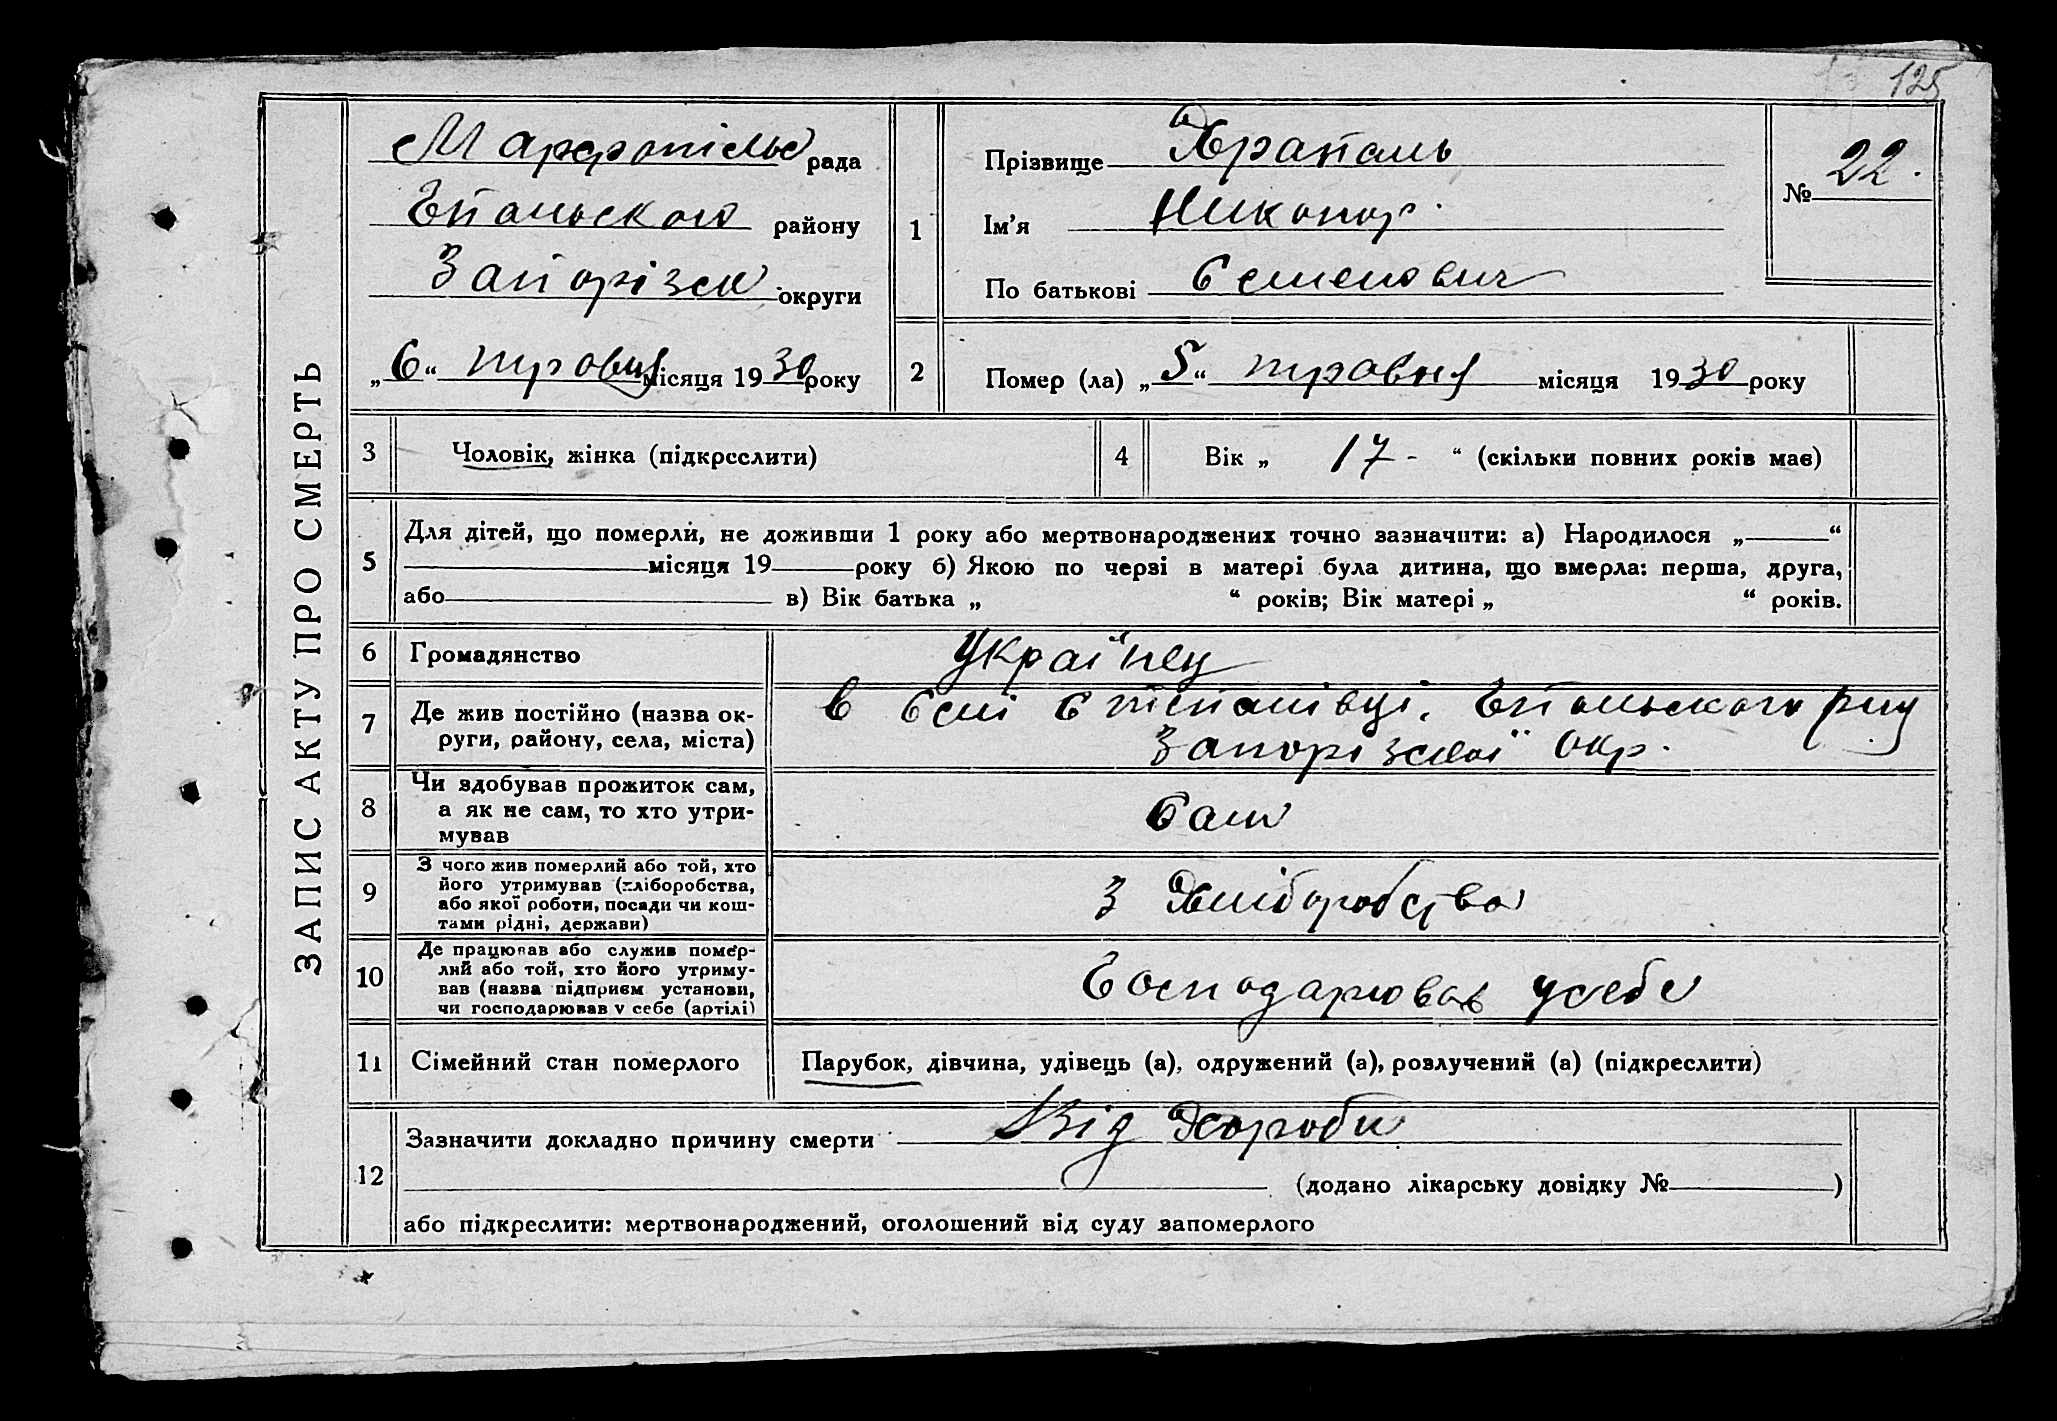 125
ЗАПИС АКТУ ПРО СМЕРТЬ
Марфопільс рада
Гуляпольского району
Запорізск округи
„6“ травня місяця 1930 року
1
Прізвище Храпаль
Ім'я Никанор
По батькові Семенович
№ 22.
2
Помер (ла) „5“ травня місяця 1930 року
3 Чоловік, жінка (підкреслити)
4 Вік „ 17 - “ (скільки повних років має)
5
Для дітей, що померли, не доживши 1 року або мертвонароджених точно зазначити: а) Народилося „ “
місяця 19 року б) Якою по черзі в матері була дитина, що вмерла: перша, друга,
або в) Вік батька „ “ років; Вік матері „ “ років.
6 Громадянство Українец
7 Де жив постійно (назва ок-
руги, району, села, міста)
в селі Степанівці,
Запорізскої Окр.
8 Чи здобував прожиток сам,
а як не сам, то хто утри-
мував
Сам
9 З чого жив померлий або той, хто
його утримував (хліборобства,
або якої роботи, посади чи кош-
тами рідні, держави)
З Хліборобства
10 Де працював або служив помер-
лий або той, хто його утриму-
вав (назва підприєм установи,
чи господарював у себе (артілі)
Господарював у себе
11 Сімейний стан померлого Парубок, дівчина, удівець (а), одружений (а), розлучений (а) (підкреслити)
12
Зазначити докладно причину смерти Від Хороби
(додано лікарську довідку № )
або підкреслити: мертвонароджений, оголошений від суду запомерлого